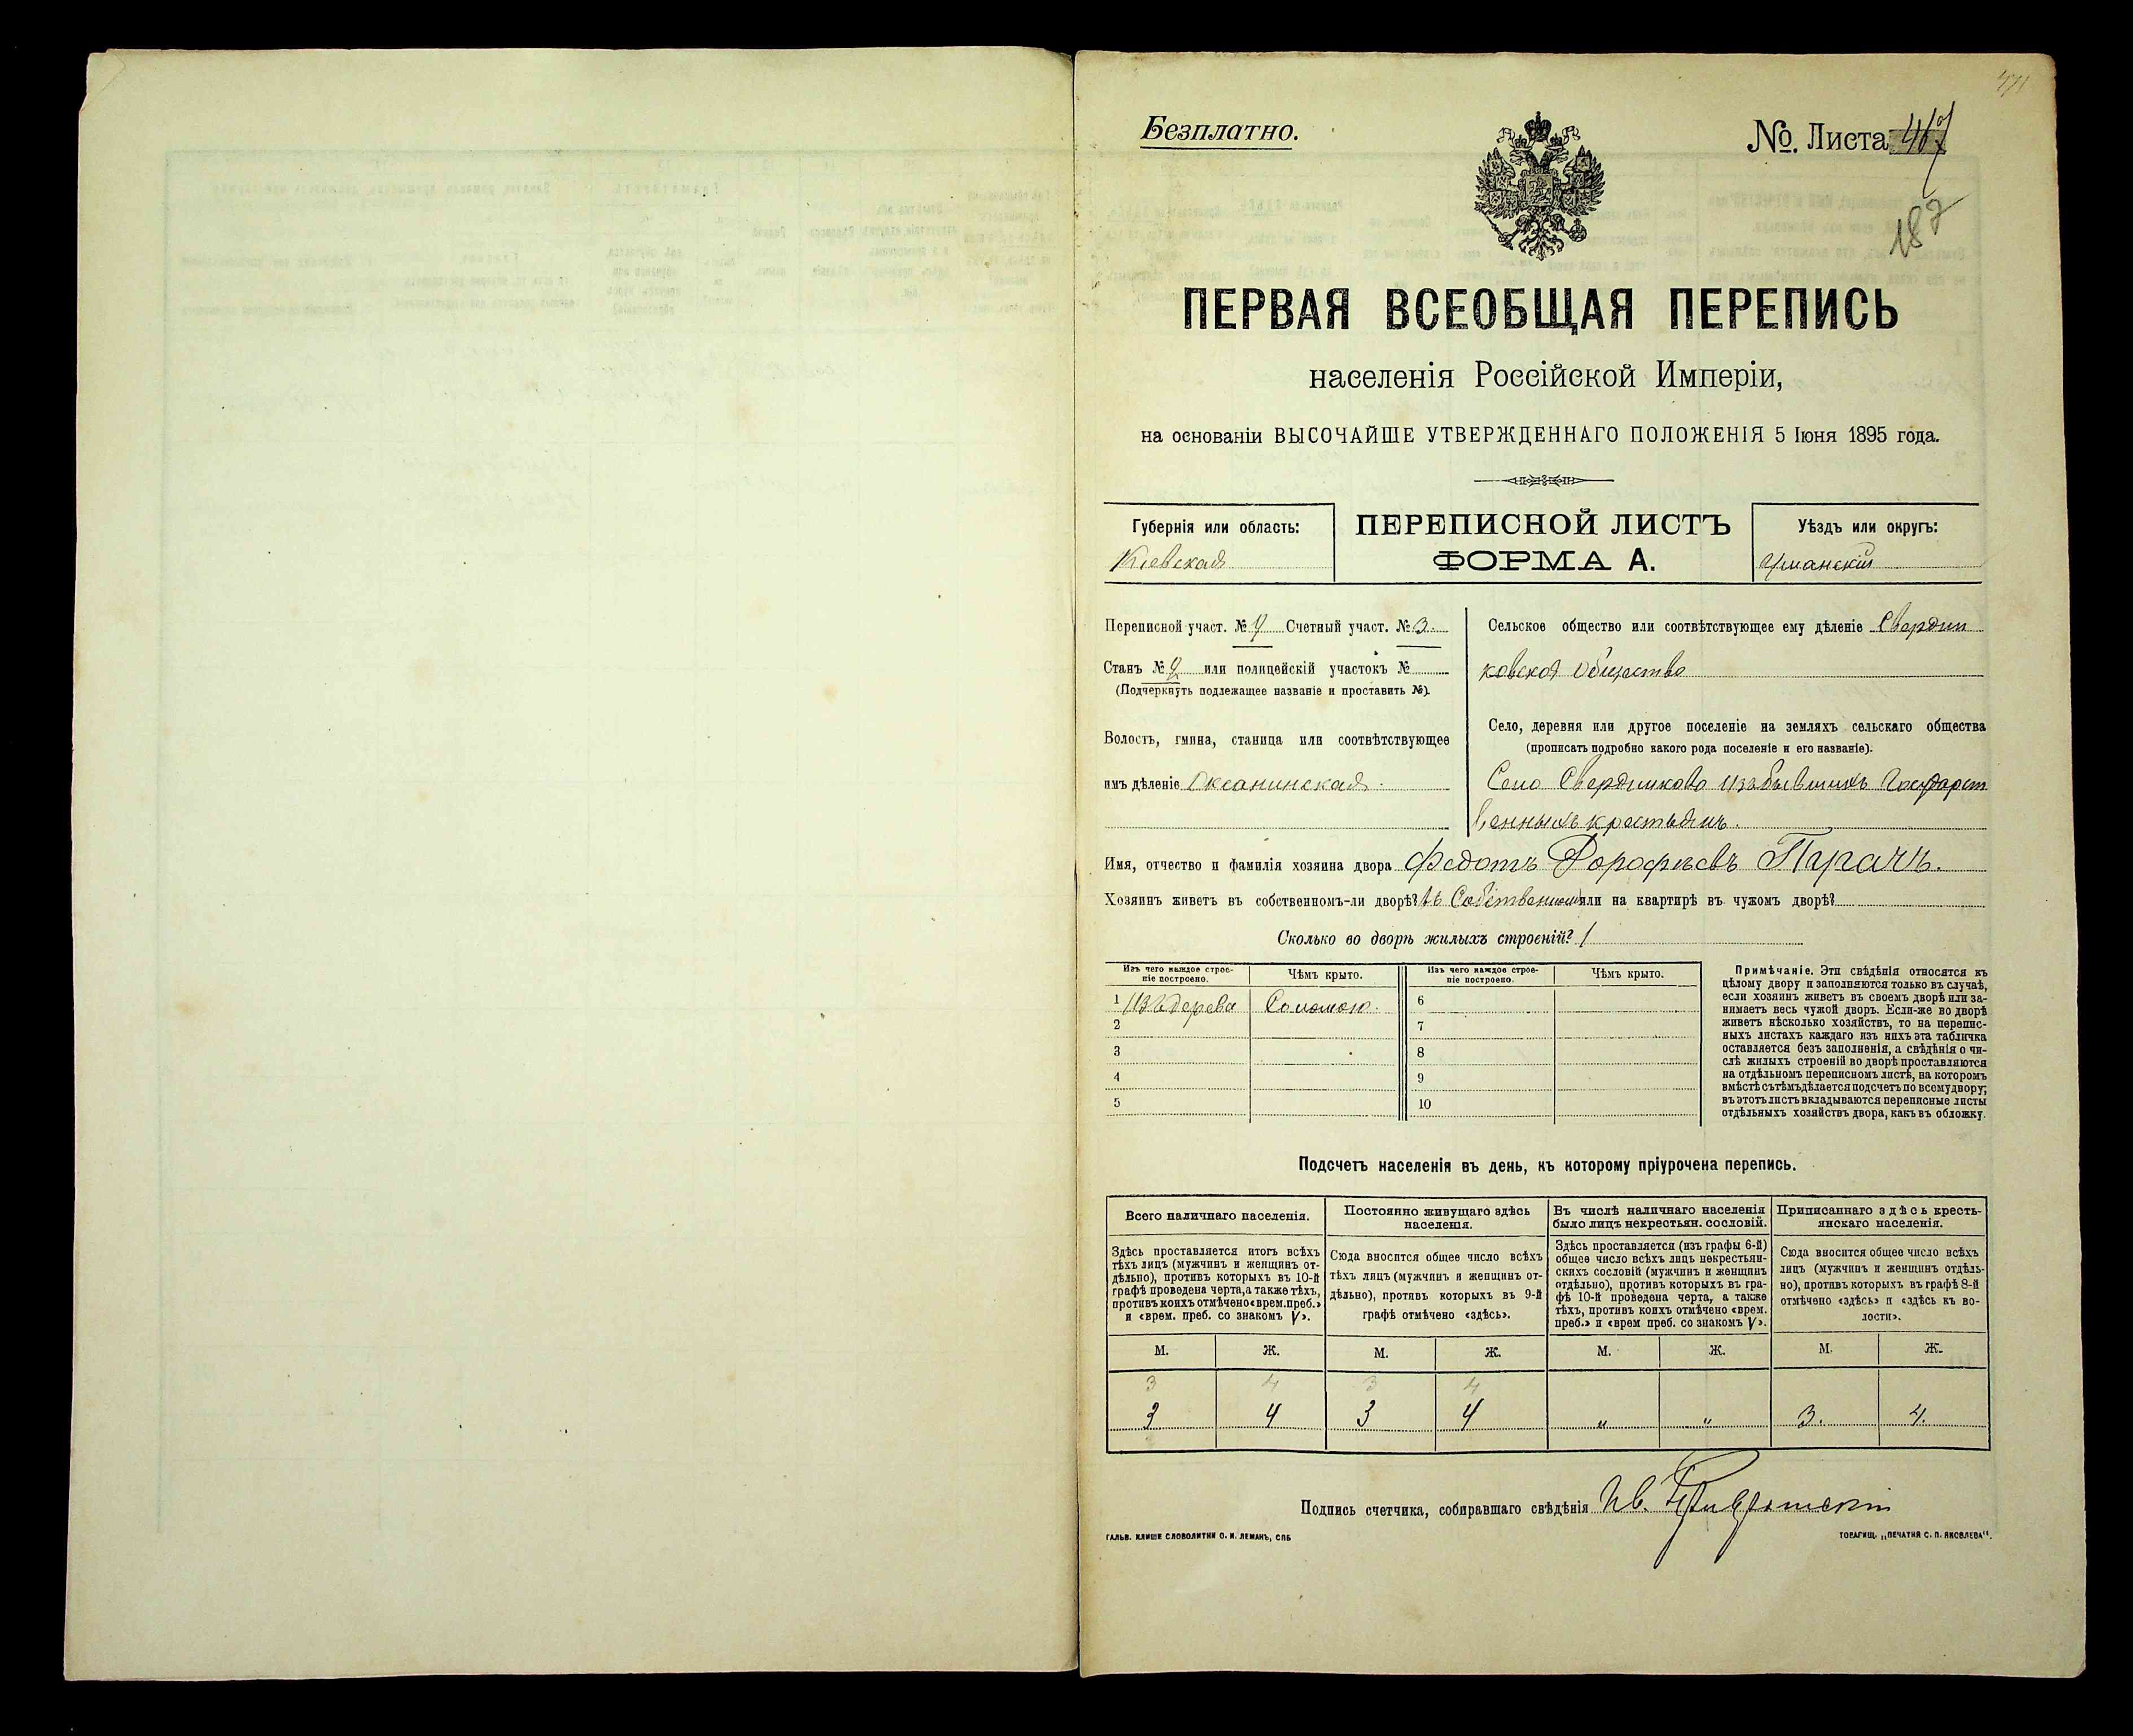 Безплатно.
№. Листа 467
187
ПЕРВАЯ ВСЕОБЩАЯ ПЕРЕПИСЬ
населенія Россійской Имперіи,
на основаніи ВЫСОЧАЙШЕ УТВЕРЖДЕННАГО ПОЛОЖЕНІЯ 5 Іюня 1895 года.
Губернія или область:
Кіевская
ПЕРЕПИСНОЙ ЛИСТЪ
ФОРМА А.
Уѣздъ или округъ:
Уманскій
Переписной участ. № Счетный участ. № 3.
Станъ № 2 или полицейскій участокъ №
(Подчеркнуть подлежащее названіе и проставить №).
Волость, гмина, станица или соотвѣтствующее
имъ дѣленіе Оксанинская.
Сельское общество или соотвѣтствующее ему дѣленіе Свердли
ковское общество
Село, деревня или другое поселеніе на земляхъ сельскаго общества
(прописать подробно какого рода поселеніе и его названіе).
Село Свердликово изъ бывшихъ Государст
венныхъ крестьянъ.
Имя, отчество и фамилія хозяина двора Федотъ Дорофѣевъ
Хозяинъ живетъ въ собственномъ-ли дворѣ? въ Собственном или на квартирѣ въ чужомъ дворѣ?
Сколько во дворѣ жилыхъ строеній? 1
Изъ чего каждое строе-
ніе построено.
Чѣмъ крыто.
Изъ чего каждое строе-
ніе построено.
Чѣмъ крыто.
1 Изъ дерева Соломою.
2
3
4
5
6
7
8
9
10
Примѣчаніе. Эти свѣдѣнія относятся къ
цѣлому двору и заполняются только въ случаѣ,
если хозяинъ живетъ въ своемъ дворѣ или за-
нимаетъ весь чужой дворъ. Если-же во дворѣ
живетъ нѣсколько хозяйствъ, то на перепис-
ныхъ листахъ каждаго изъ нихъ эта табличка
оставляется безъ заполненія, а свѣдѣнія о чи-
слѣ жилыхъ строеній во дворѣ проставляются
на отдѣльномъ переписномъ листѣ, на которомъ
вмѣстѣ съ тѣмъ дѣлается подсчетъ по всему двору;
въ этотъ листъ вкладываются переписные листы
отдѣльныхъ хозяйствъ двора, какъ въ обложку.
Подсчетъ населенія въ день, къ которому пріурочена перепись.
Всего наличнаго населенія.
Здѣсь проставляется итогъ всѣхъ
тѣхъ лицъ (мужчинъ и женщинъ от-
дѣльно), противъ которыхъ въ 10-й
графѣ проведена черта, а также тѣхъ,
противъ коихъ отмѣчено «врем. преб.»
и «врем. преб. со знакомъ V».
Постоянно живущаго здѣсь
населенія.
Сюда вносится общее число всѣхъ
тѣхъ лицъ (мужчинъ и женщинъ от-
дѣльно), противъ которыхъ въ 9-й
графѣ отмѣчено «здѣсь».
Въ числѣ наличнаго населенія
было лицъ некрестьян. сословій.
Здѣсь проставляется (изъ графы 6-й)
общее число всѣхъ лицъ некрестьян-
скихъ сословій (мужчинъ и женщинъ
отдѣльно), противъ которыхъ въ гра-
фѣ 10-й проведена черта, а также
тѣхъ, противъ коихъ отмѣчено «врем.
преб.» и «врем преб. со знакомъ V».
Приписаннаго здѣсь кресть-
янскаго населенія.
Сюда вносится общее число всѣхъ
лицъ (мужчинъ и женщинъ отдѣль-
но), противъ которыхъ въ графѣ 8-й
отмѣчено «здѣсь» и «здѣсь къ во-
лости».
М. Ж. М. Ж. М. Ж. М. Ж.
3 4 3 4
3 4 3 4 " " 3. 4.
Подпись счетчика, собиравшаго свѣдѣнія Ив.
ГАЛЬВ. КЛИШЕ СЛОВОЛИТНИ О. И. ЛЕМАНЪ, СПБ
ТОВАРИЩ. „ПЕЧАТНЯ С. П. ЯКОВЛЕВА“.